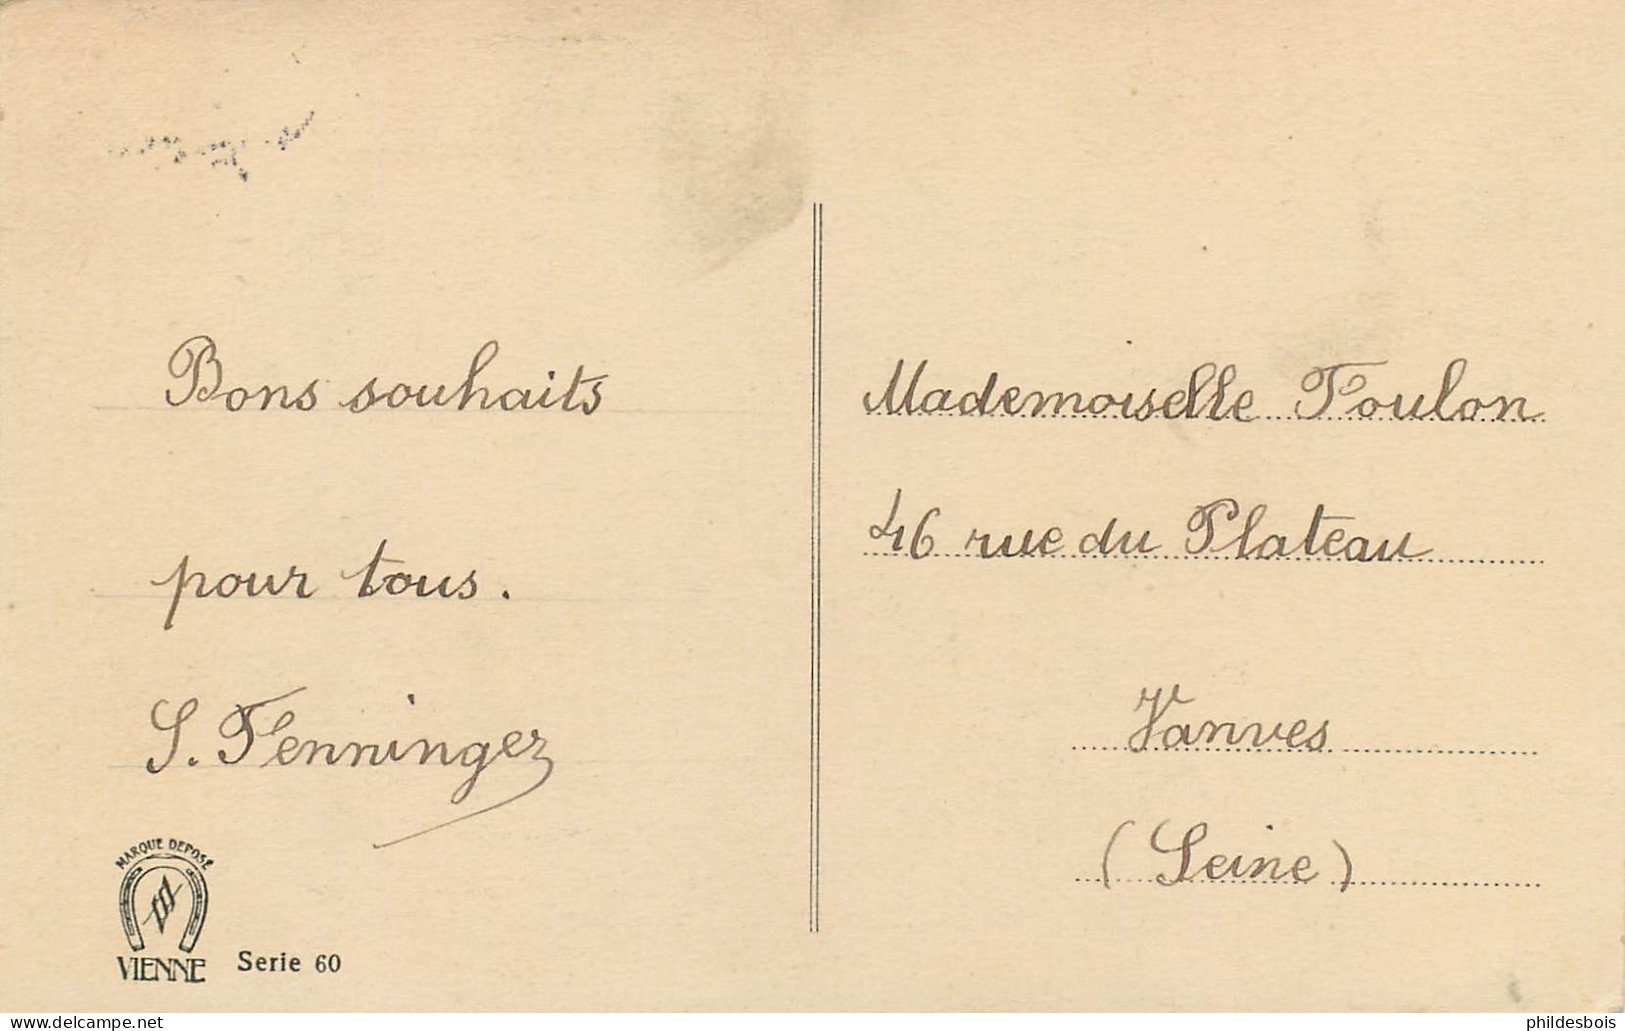 Bons souhaits
pour tous.
S. Fenninger
MARQUE DEPOSÉ
VIENNE
Serie 60
Mademoiselle Foulon
46 rue du Plateau
Vanves
(Seine)
www.delcampe.net
phildesbois